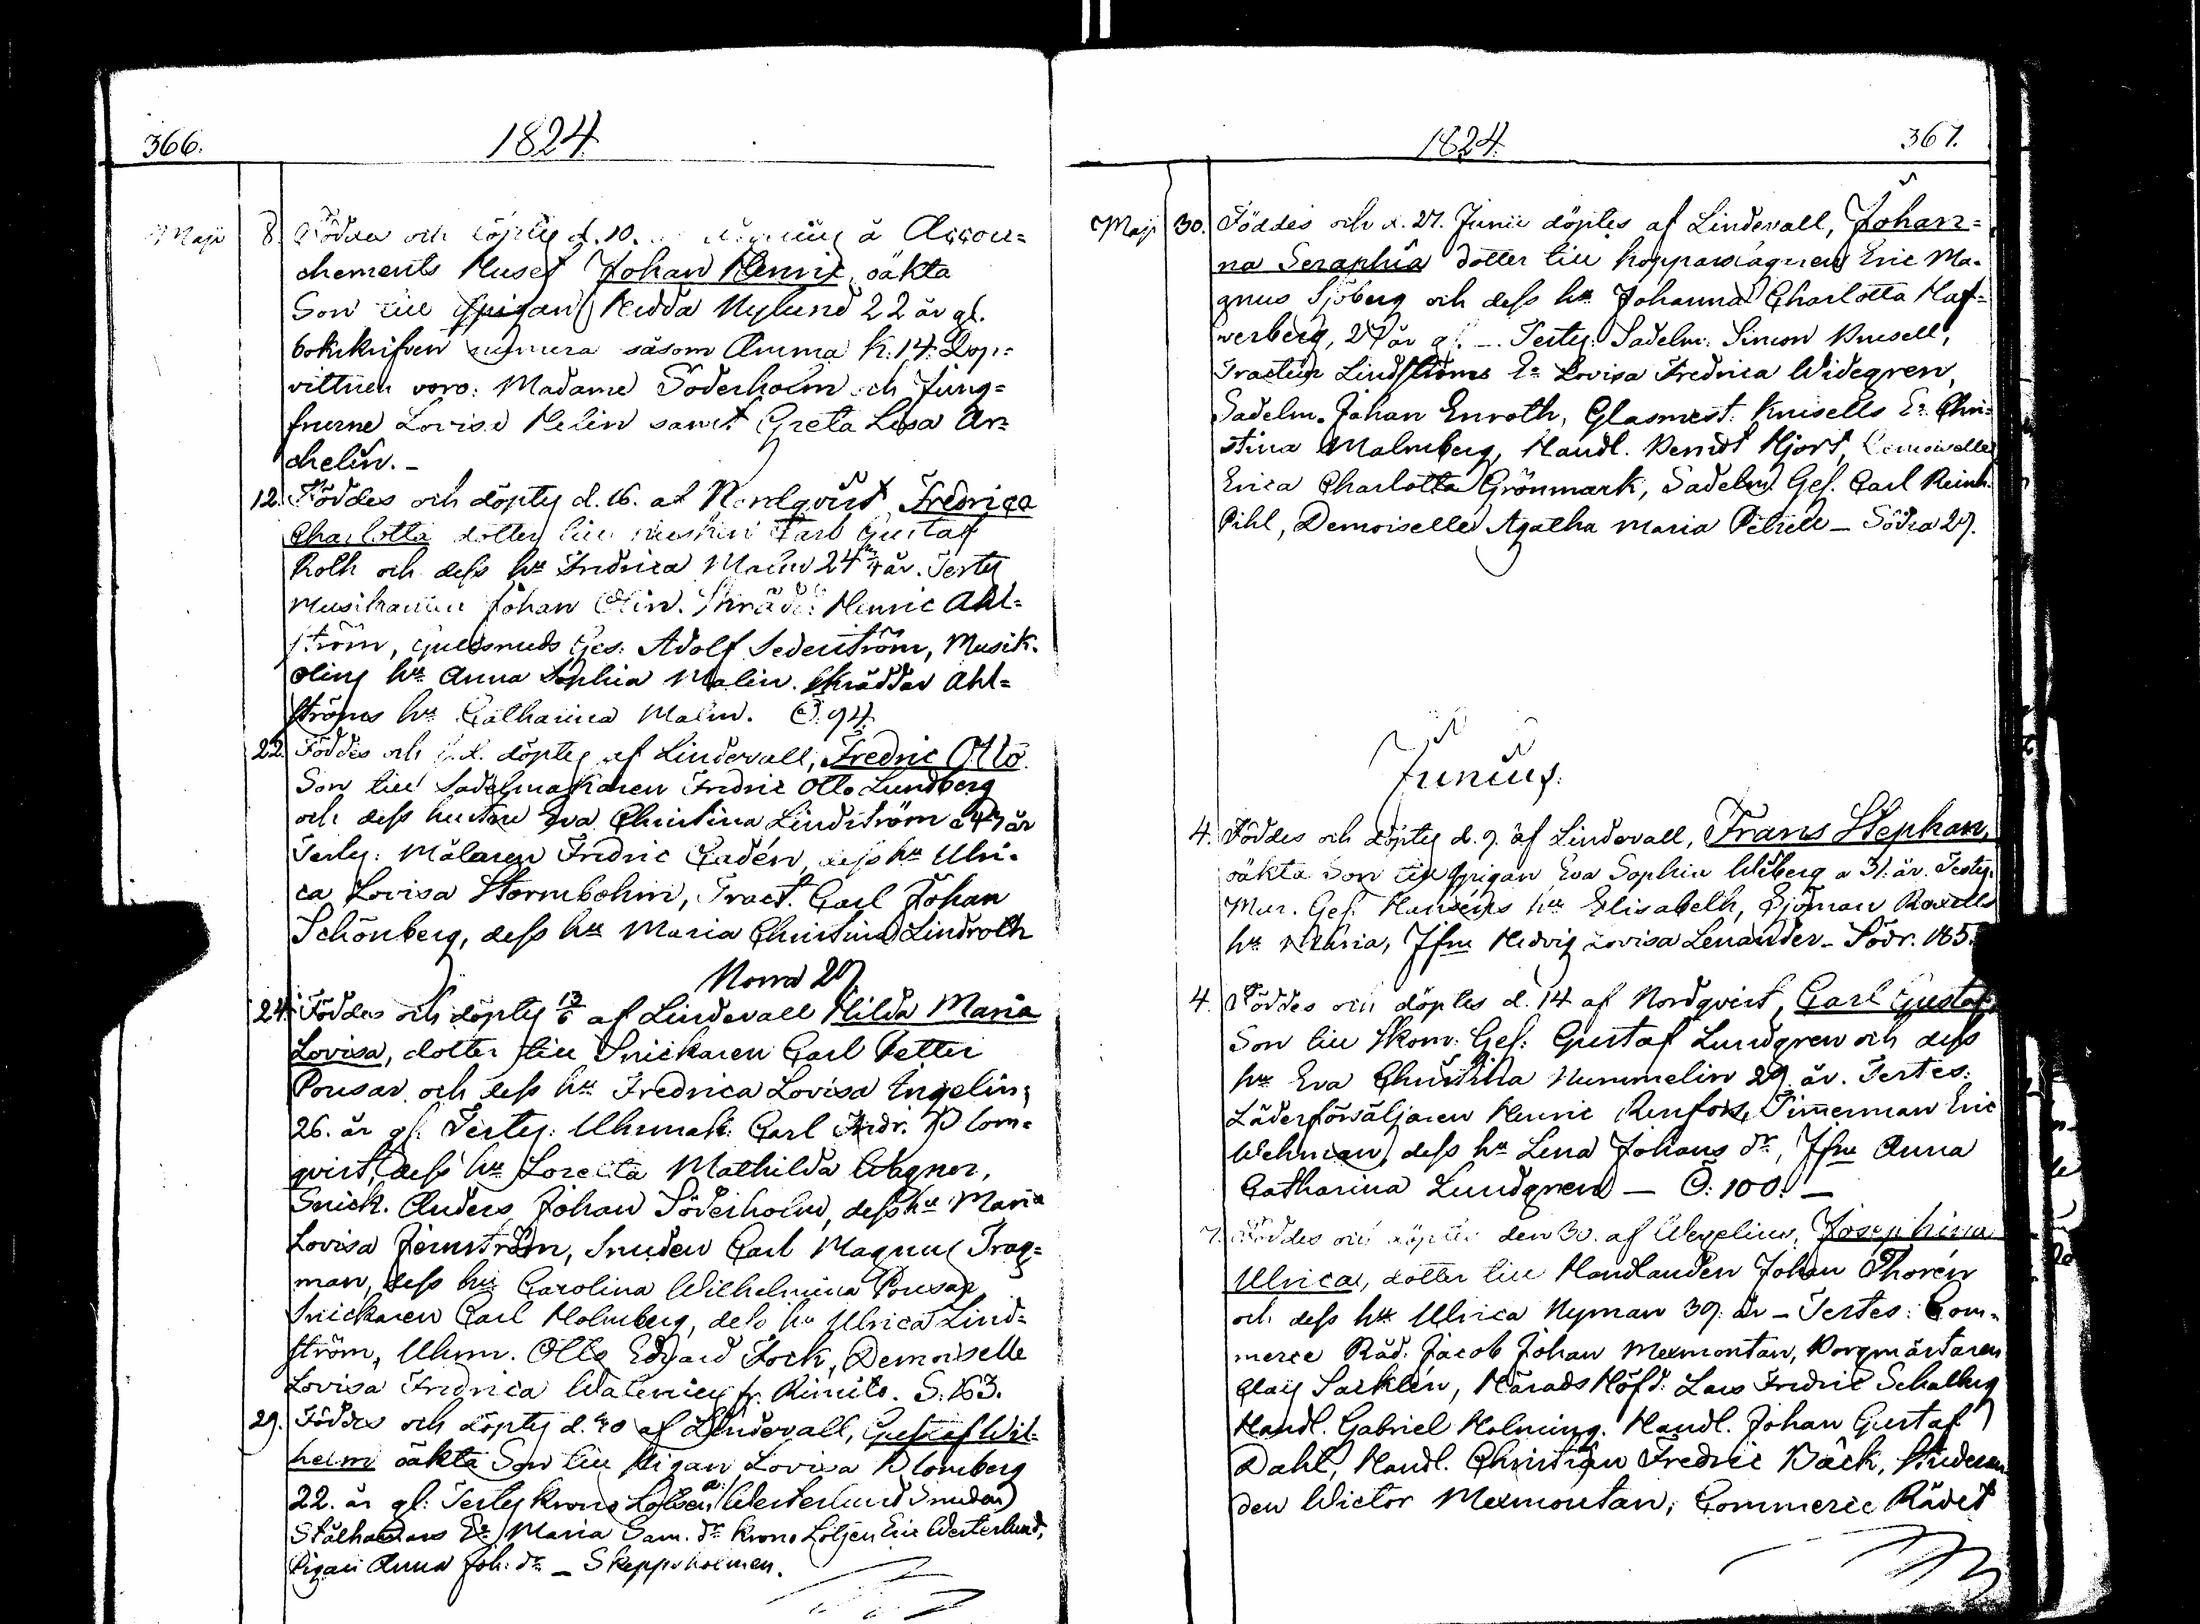 366.
1824.
Maji 8. Föddes och döptes d. 10. å Accou=
chements Huset Johan Henric, oäkta
Son till Pigan Hedda Nylund 22 år gl.
bokskrifven numera såsom Amma K: 14. Dop=
vittnen voro: Madame Söderholm och Jung=
frurne Lovisa Helin samt Greta Lisa Ar=
chelin. –
12. Föddes och döptes d. 16. af Nordqvist Fredrica
Charlotta dotter till Carl Gustaf
Roth och dess hu Fredrica Malm 24 år. Testes
Musikanten Johan Olin. Skrädd: Henric Ahl=
ström, Guldsmeds Ges: Adolf Sederström, Musik.
Olins hu Anna Sophia Malin. Skräddar Ahl=
ströms hu Catharina Malm. Ö. 94.
22. Föddes och döptes af Lindevall, Fredric Otto
Son till Sadelmakaren Fredric Otto Lundberg
och dess hustru Eva Christina Lindström år
Testes: Målaren Fredric Gadén, dess hu Ulri=
ca Lovisa Stormbohm, Tract. Carl Johan
Schönberg, dess hu Maria Christina Lindroth
Norra 29
24. Föddes och döptes 13/6 af Lindevall Hilda Maria
Lovisa, dotter till Snickaren Carl Petter
Pousar och dess hu Fredrica Lovisa Engelin;
26. år gl: Testes: Uhrmak: Carl Fredr. Blom=
qvist, dess hu Loretta Mathilda Wagner,
Snick. Anders Johan Söderholm, dess hu Maria
Lovisa Jernström, Smeden Carl Magnus Trag=
man, dess hu Carolina Wilhelmina Pousar
Snickaren Carl Holmberg, dess hu Ulrica Lind=
ström, Uhrm. Otto Edvard Fock, Demoiselle
Lovisa Fredrica Walenius fr. Rimito. S. 163.
29. Föddes och döptes d. 30 af Lindevall, Gustaf Wil=
helm oäkta Son till Pigan Lovisa Blomberg
22. år gl: Testes Krono Lotsen Westerlund Smeden
Stålhanders Ea Maria Sam. dr Krono Lotsen Eric Westerlund,
Pigan Anna Joh: dr – Skeppsholmen.
1824.
367.
Maji 30. Föddes och d. 27. Junii döptes af Lindevall, Johan=
na Seraphia dotter till Kopparslagaren Eric Ma=
gnus Sjöberg och dess hu Johanna Charlotta Haf=
verberg, 27 år gl. – Testes: Sadelm: Simon Brusell,
Tracteur Lindströms Ea Lovisa Fredrica Widegren,
Sadelm. Johan Enroth, Glasmest: Knisells Ea Chri=
stina Malmberg, Handl. Berndt Hjort, Demoiselle
Erica Charlotta Grönmark, Sadelm. Ges. Carl Reinh.
Pihl, Demoiselle Agatha Maria Petrell – Södra 27.
Junius.
4. Föddes och döptes d. 9. af Lindevall, Frans Stephan,
oäkta Son till Pigan Eva Sophia Wiberg a 31. år. Testes.
Mur. Ges. Hanséns hu Elisabeth, Sjöman Roxells
hu Maria, Jfru Hedvig Lovisa Lenander – Södr. 185.
4. Föddes och döptes d. 14 af Nordqvist, Carl Gustaf,
Son till Skom: Ges: Gustaf Lundgren och dess
hu Eva Christina Nummelin 29. år. Testes:
Läderförsäljaren Henric Renfors, Timmerman Eric
Wehman, dess hu Lena Johans dr, Jfru Anna
Catharina Lundgren – Ö: 100. –
7. Föddes och döptes den 30. af Wegelius, Josephina
Ulrica, dotter till Handlanden Johan Thorén
och dess hu Ulrica Nyman 39. år – Testes: Com=
merce Råd. Jacob Johan Mexmontan, Borgmästaren
Clas Sacklén, Härads Höfd: Lars Fredric Schalberg
Handl. Gabriel Holming. Handl. Johan Gustaf
Dahl, Handl. Christian Fredric Bäck, Studeran
den Wictor Mexmontan, Commerce Rådet